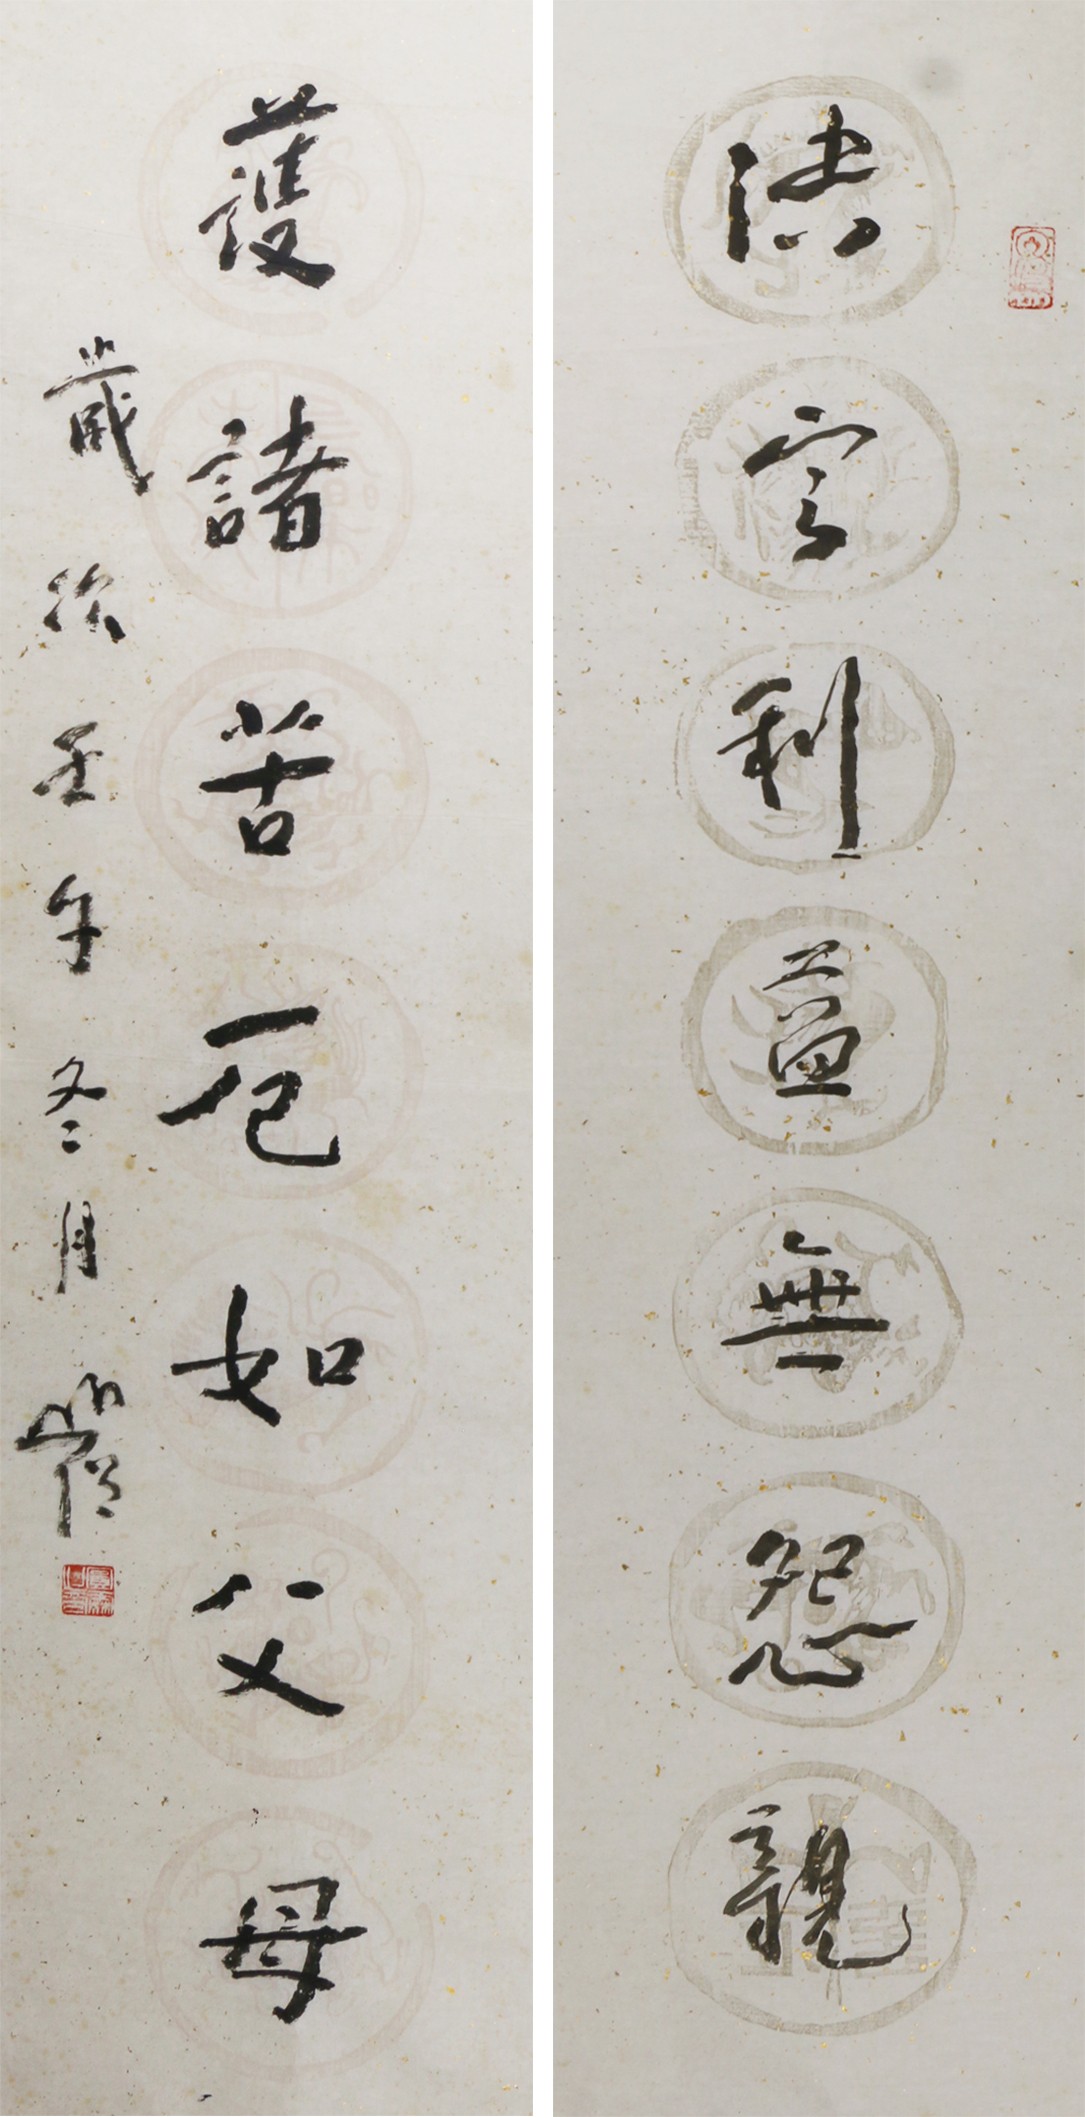 利益無怨親
護諸苦厄如父母
歲次壬午冬月